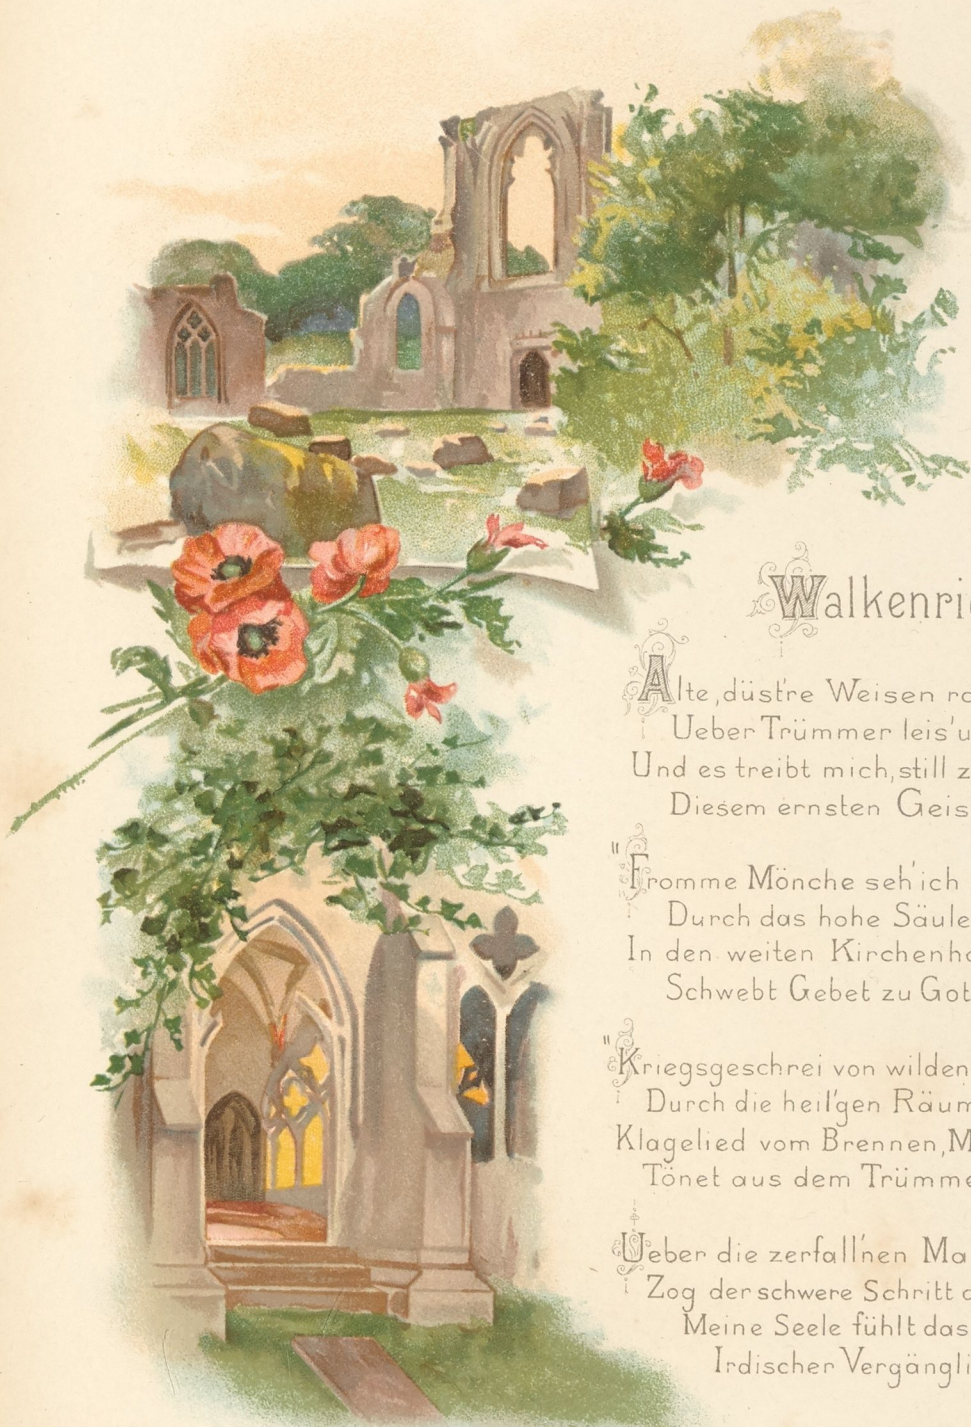 Walkenri
Alte, düst're Weisen ra
Ueber Trümmer leis' u
Und es treibt mich, still z
Diesem ernsten Geis
"Fromme Mönche seh' ich
Durch das hohe Säule
In den weiten Kirchenha
Schwebt Gebet zu Got
"Kriegsgeschrei von wilden
Durch die heil'gen Räum
Klagelied vom Brennen, M
Tönet aus dem Trümme
Ueber die zerfall'nen Ma
Zog der schwere Schritt d
Meine Seele fühlt das
Irdischer Vergängli